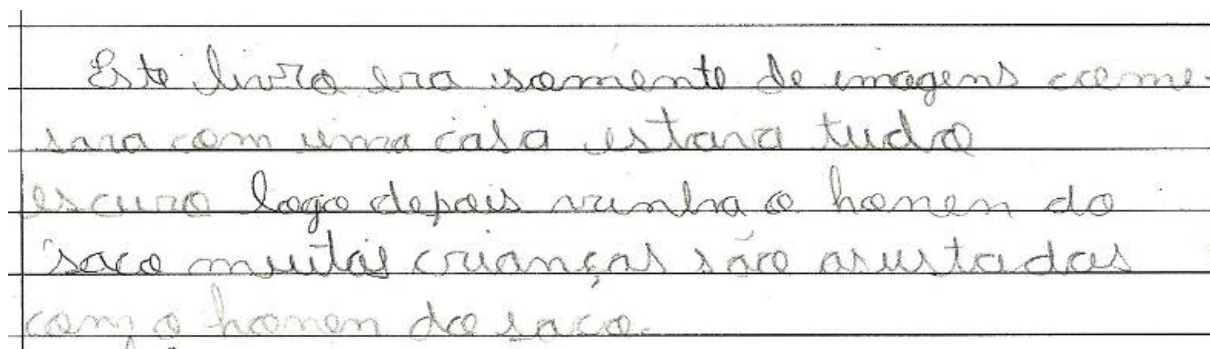 Este livro era somente de imagens come-
sava com uma casa estava tudo
escuro logo depois vinha o homen do
saco muitas crianças são asustadas
com o homen do saco.